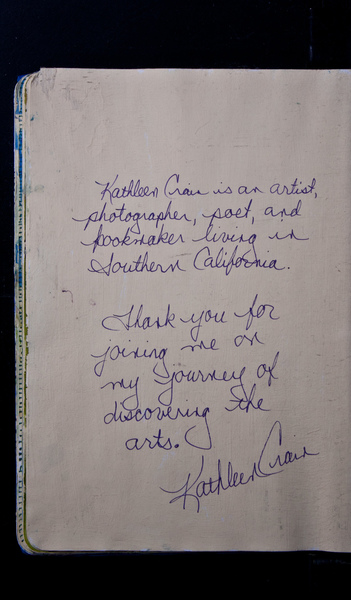 Kathleen Crain is an artist,
photographer, poet, and
bookmaker living in
Southern California.
Thank you for
joining me on
my journey of
discovering the
arts.
Kathleen Crain